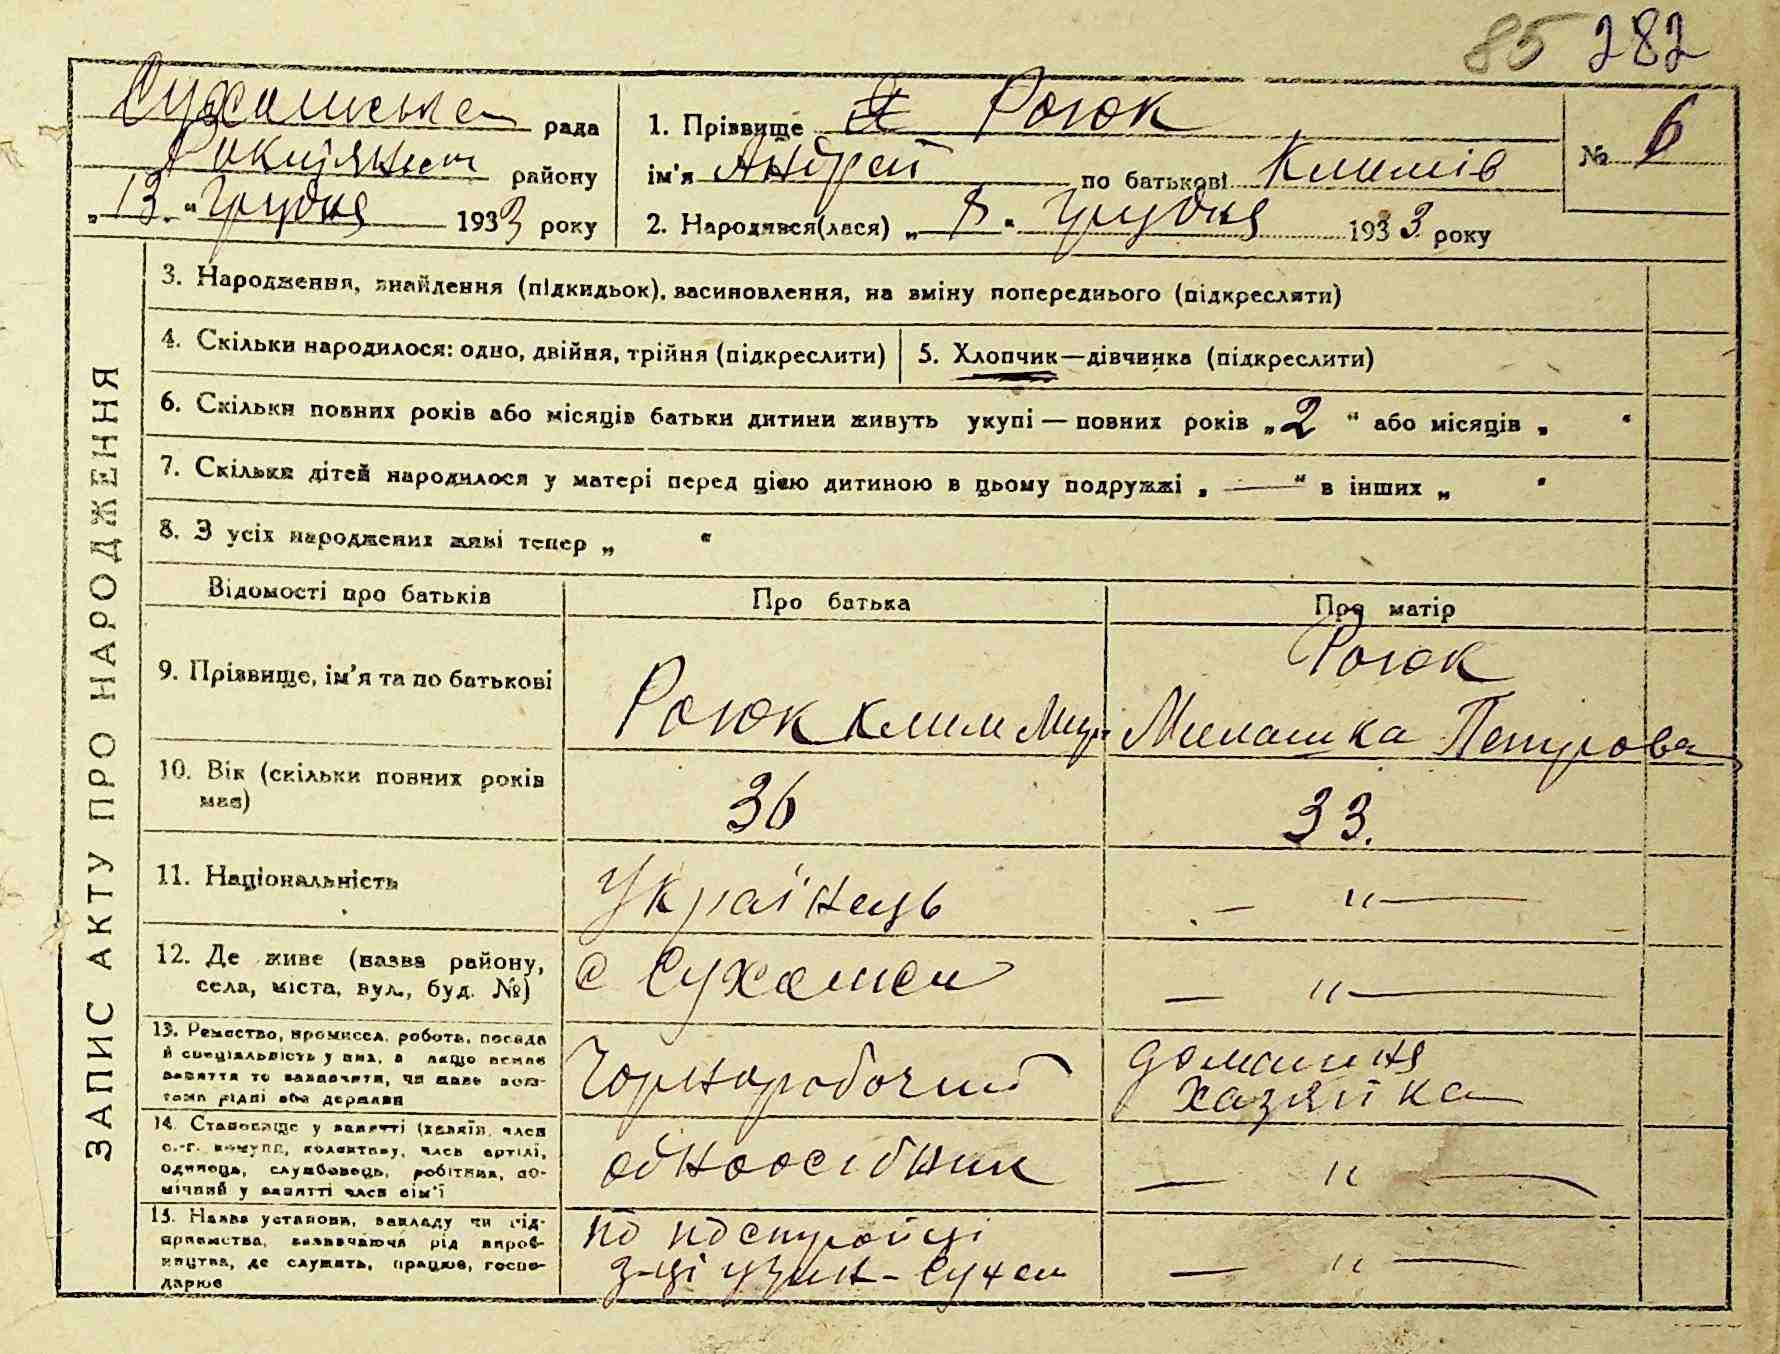 85 282
Сухалиська рада
Рокитянськ району
„13.“ грудня 1933 року
1. Прізвище Рогюк
ім'я Андрей по батькові Климів
№ 6
2. Народився(лася) „8“ грудня 1933 року
ЗАПИС АКТУ ПРО НАРОДЖЕННЯ
3. Народження, знайдення (підкидьок), засиновлення, на зміну попереднього (підкреслити)
4. Скільки народилося: одно, двійня, трійня (підкреслити)
5. Хлопчик—дівчинка (підкреслити)
6. Скільки повних років або місяців батьки дитини живуть укупі — повних років „2“ або місяців „ “
7. Скільки дітей народилося у матері перед цією дитиною в цьому подружжі „—“ в інших „ “
8. З усіх народжених живі тепер „ “
Відомості про батьків
Про батька
Про матір
9. Прізвище, ім'я та по батькові
Рогюк Клим
Рогюк
Милашка Петрова
10. Вік (скільки повних років має)
36
33.
11. Національність
Українець
— " —
12. Де живе (назва району,
села, міста, вул., буд. №)
с Сухалиси
— " —
13. Ремество, промисел, робота, посада
й спеціяльність у них, а якщо немає
заняття то зазначити, чи живе
коштом рідні або держави
Чорнаробочий
домашня
хазяйка
14. Становище у занятті (хазяїн, член
с.-г. комуни, колективу, член артілі,
одинець, службовець, робітник, по-
мічний у занятті член сім'ї
одноосібник
— " —
15. Назва установи, закладу чи під-
приємства, зазначаючи рід вироб-
ництва, де служить, працює, госпо-
дарює
по постройці
з-ці узин-
— " —